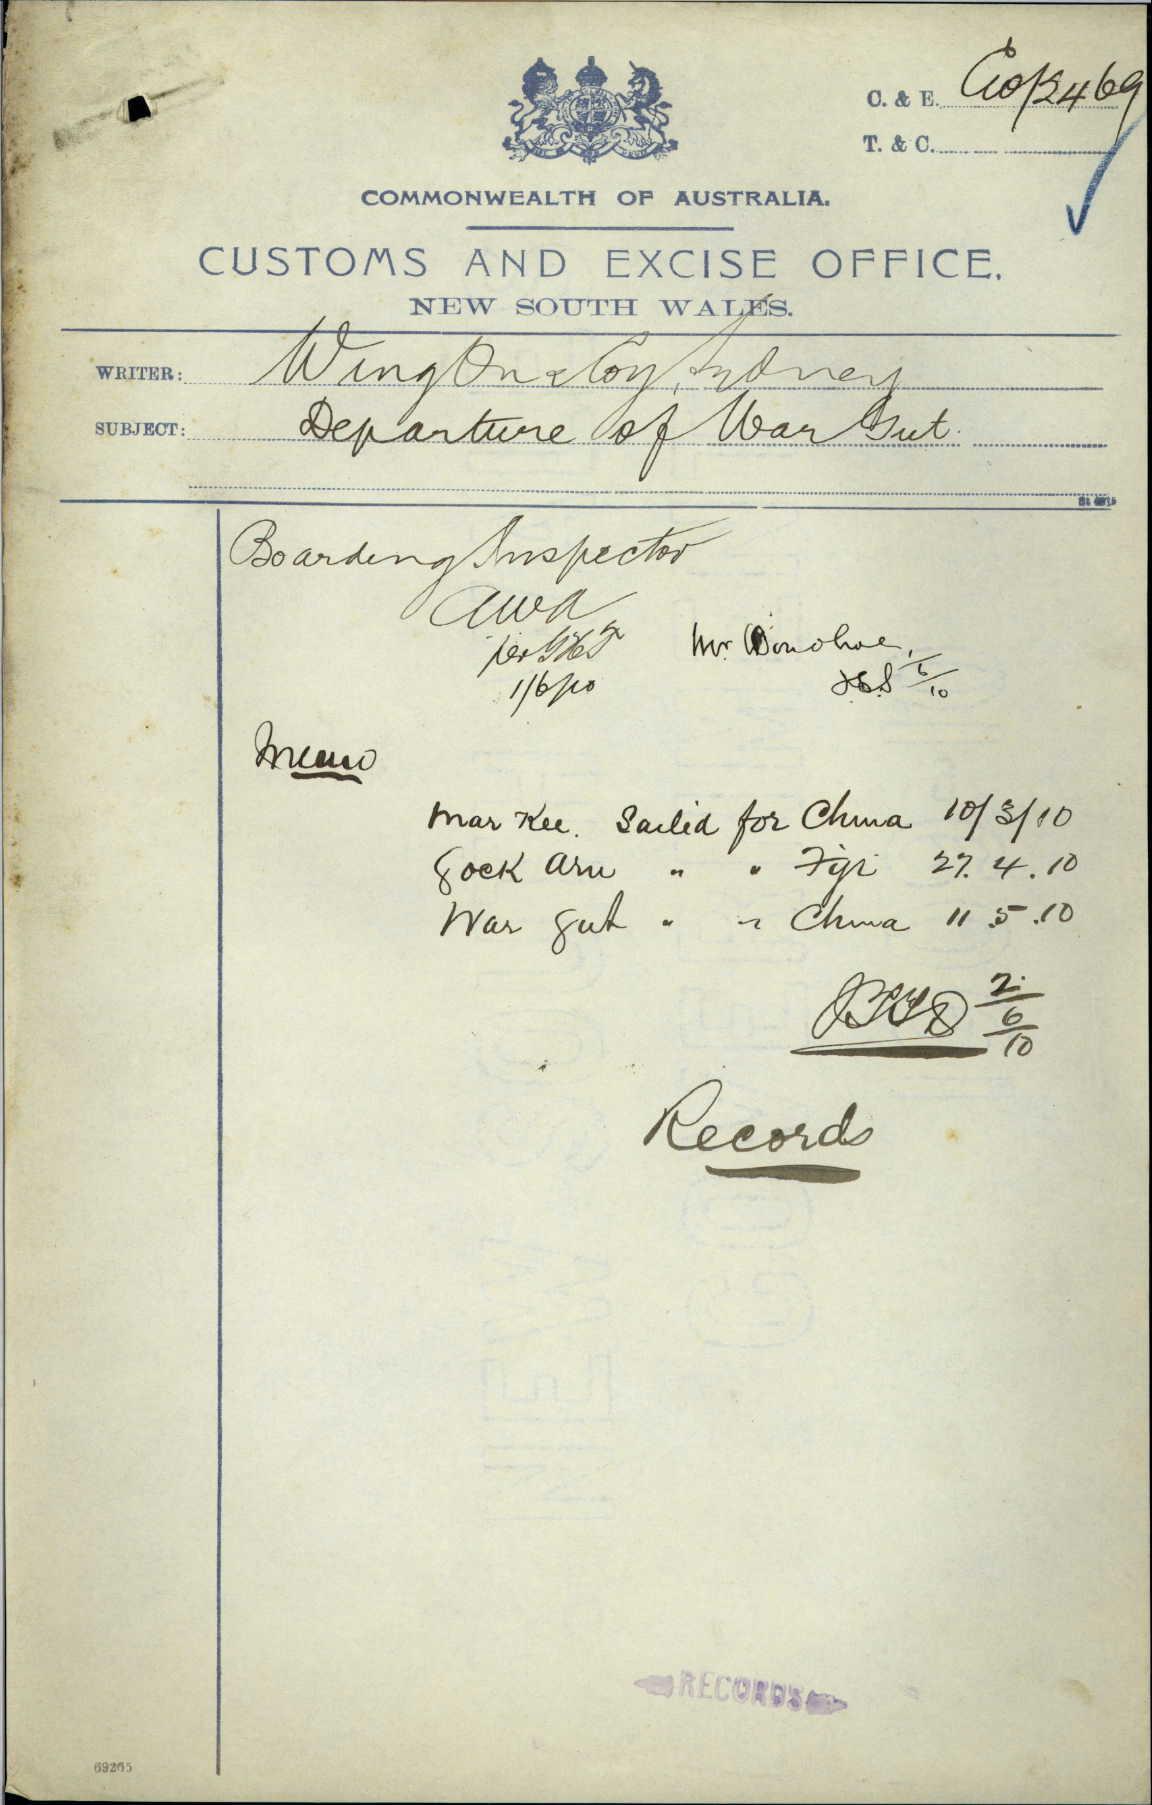 C. & E. C10/2469
T. & C.
COMMONWEALTH OF AUSTRALIA.
CUSTOMS AND EXCISE OFFICE,
NEW SOUTH WALES.
WRITER: Wing On & Coy, Sydney
SUBJECT: Departure of War Gut
Boarding Inspector
AWA
per
1/6/10
Mr. Donohoe,
6/10
Memo
Mar Kee. Sailed for China 10/3/10
Gock Aru " " Fiji 27.4.10
War Gut " " China 11.5.10
2/6/10
Records
RECORDS
69265